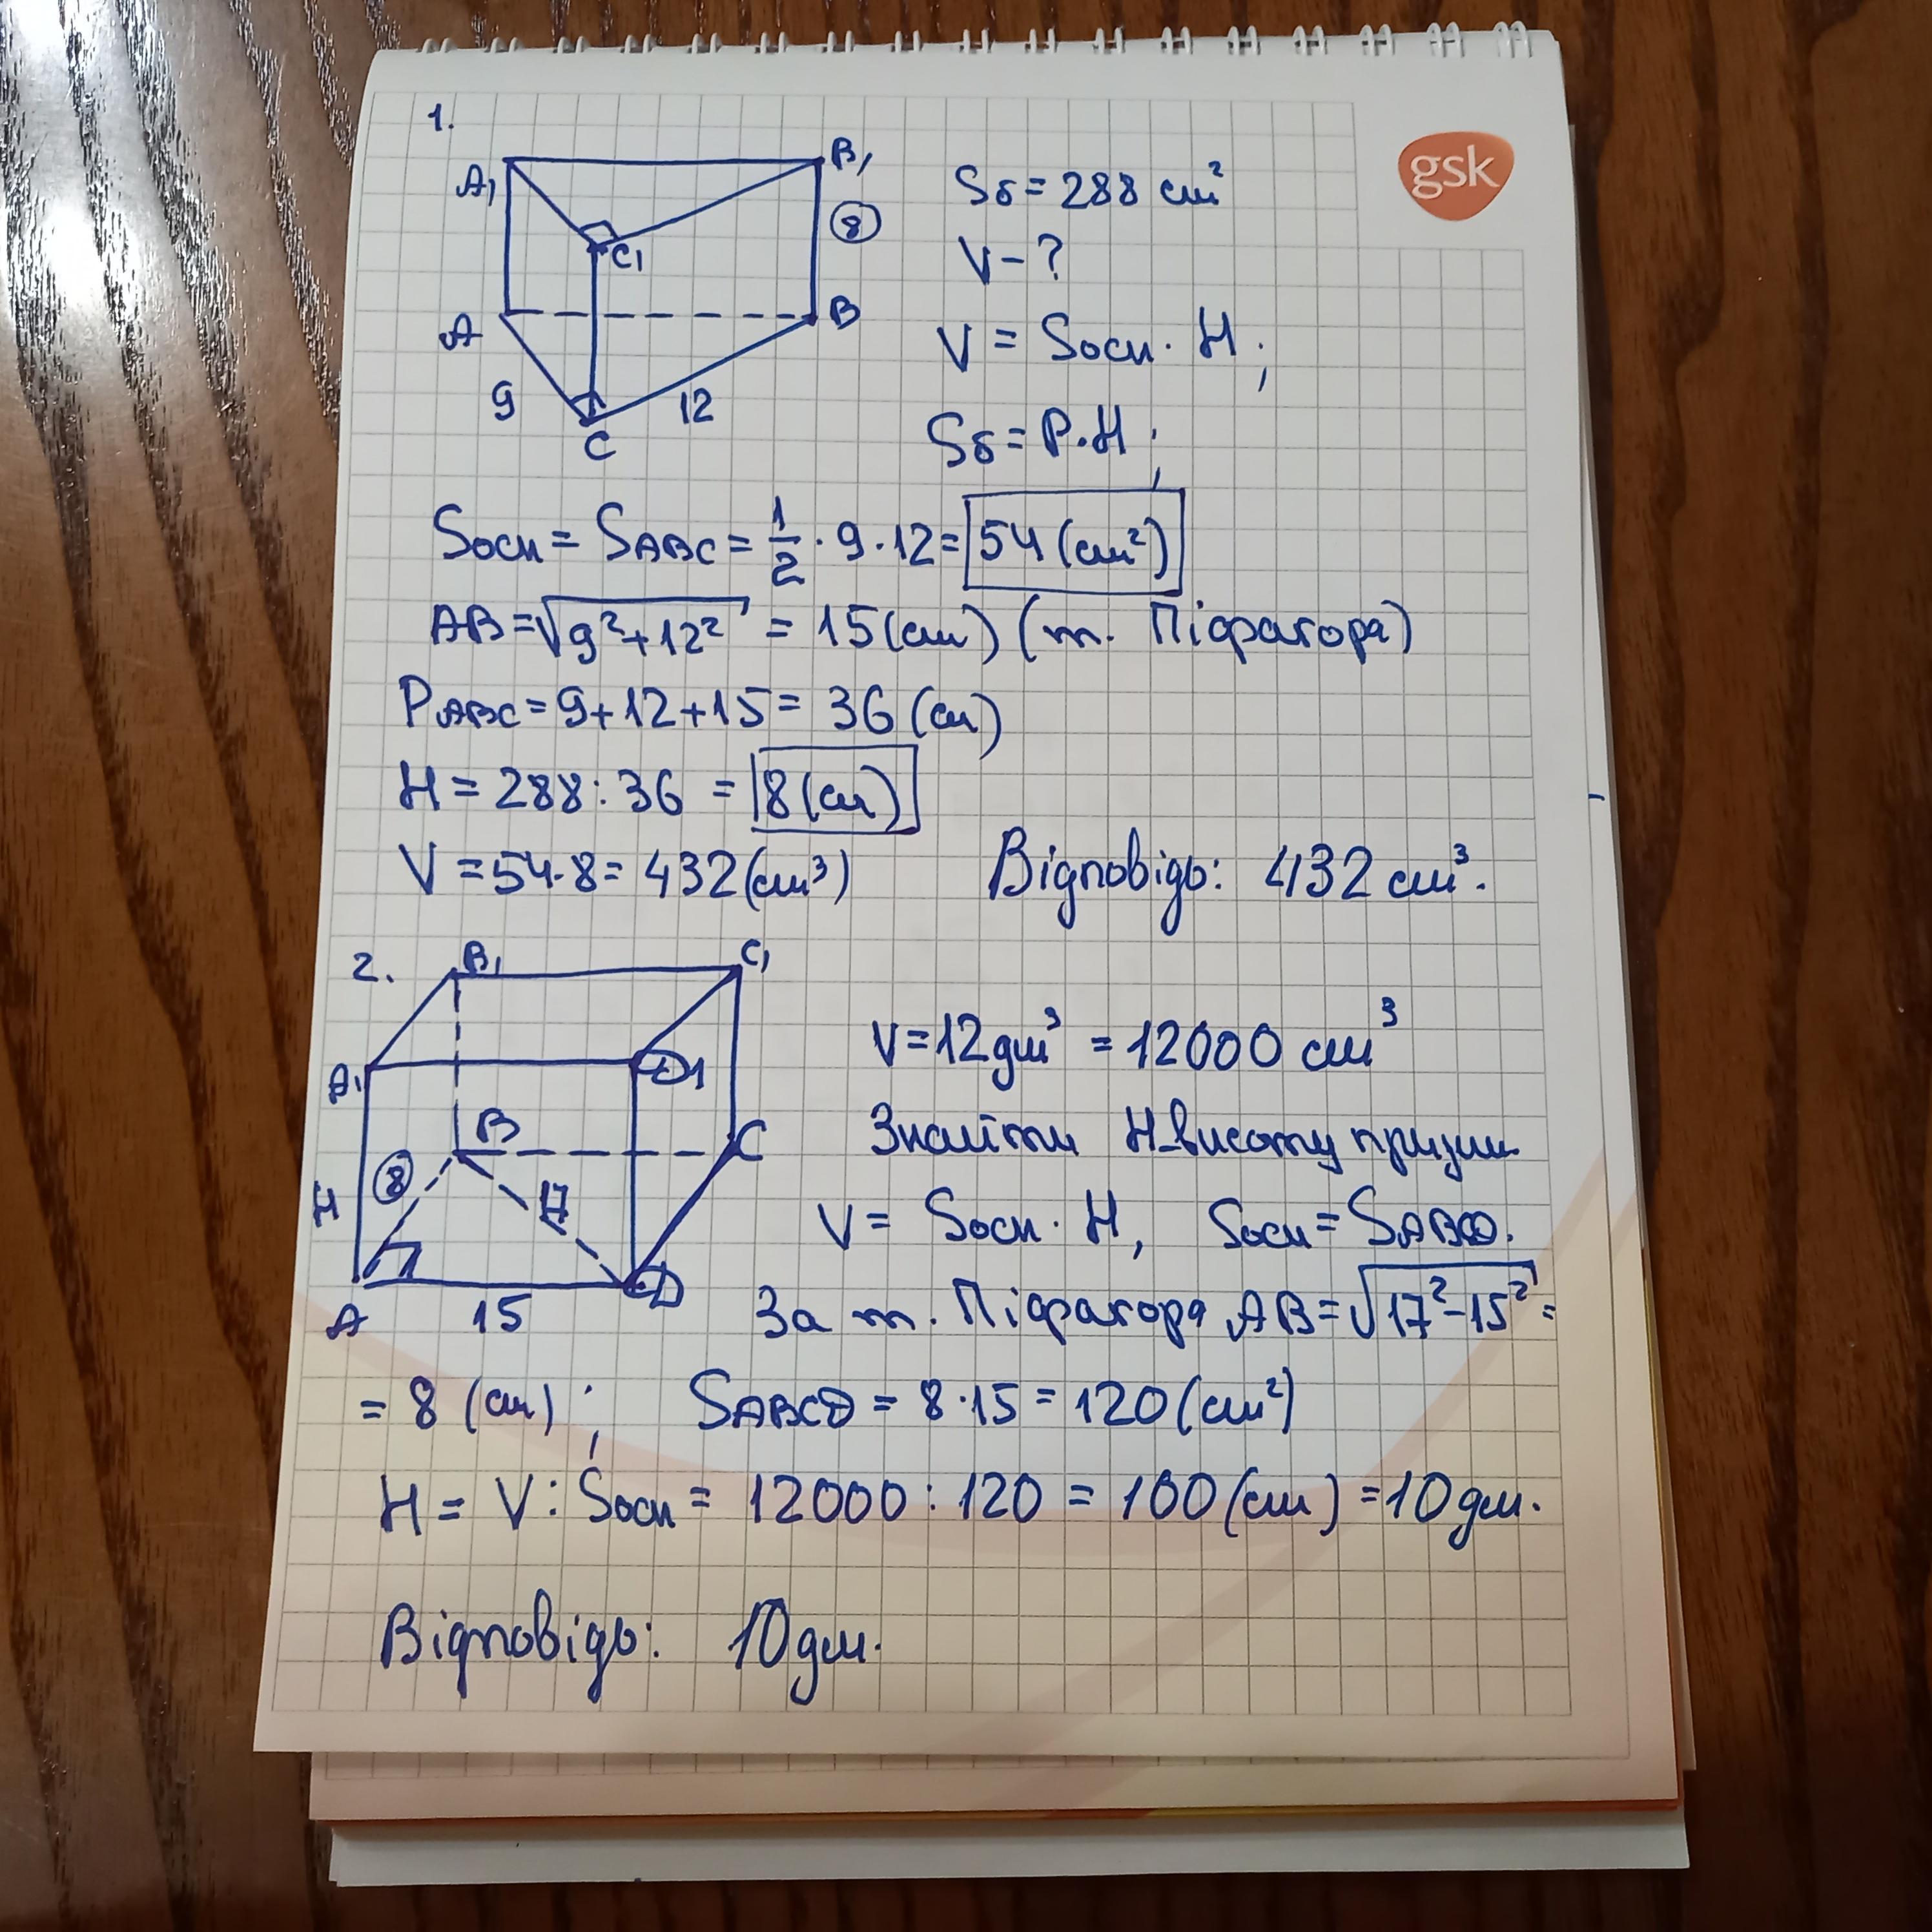 gsk
1.
A₁ B₁
Sб = 288 см²
8
C₁
V - ?
A B
V = Sосн · H;
9 12
C
Sб = P · H;
Sосн = SABC = 1/2 · 9 · 12 = 54 (см²)
AB = √(9² + 12²) = 15 (см) (т. Піфагора)
PABC = 9 + 12 + 15 = 36 (см)
H = 288 : 36 = 8 (см)
V = 54 · 8 = 432 (см³) Відповідь: 432 см³.
2.
B₁ C₁
A₁ D1
V = 12 дм³ = 12000 см³
B C
Знайти H - висоту призми
H 8 17
V = Sосн · H, Sосн = SABCD.
A 15 D
За т. Піфагора AB = √(17² - 15²) =
= 8 (см); SABCD = 8 · 15 = 120 (см²)
H = V : Sосн = 12000 : 120 = 100 (см) = 10 дм.
Відповідь: 10 дм.